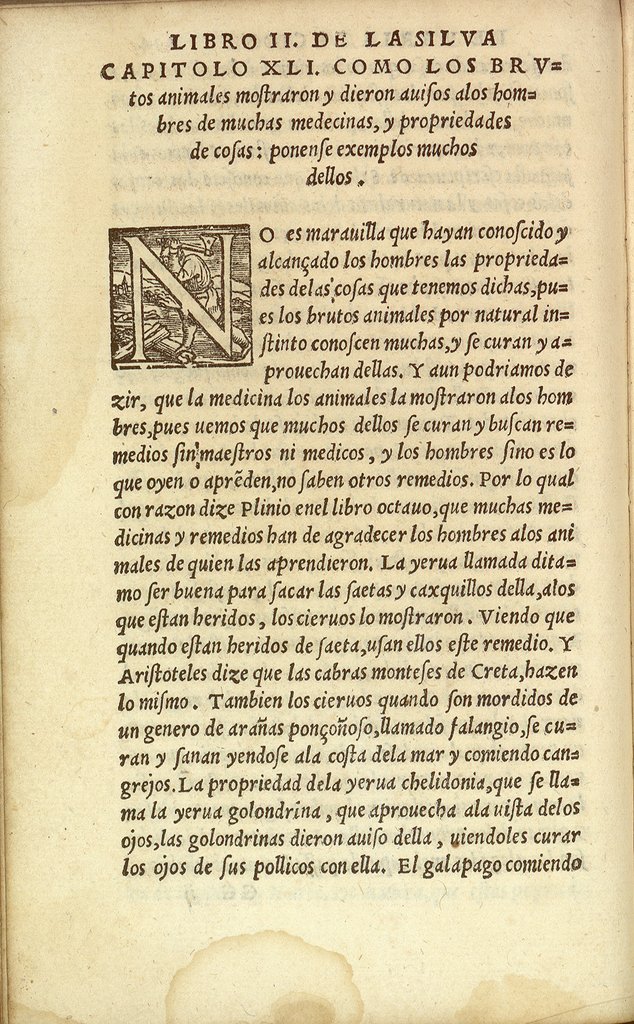 LIBRO II. DE LA SILVA
CAPITOLO XLI. COMO LOS BRV=
tos animales moſtraron y dieron auiſos alos hom=
bres de muchas medecinas, y propriedades
de coſas: ponenſe exemplos muchos
dellos.
NO es marauilla que hayan conoſcido y
alcançado los hombres las proprieda=
des delas coſas que tenemos dichas, pu=
es los brutos animales por natural in=
ſtinto conoſcen muchas, y ſe curan y a=
prouechan dellas. Y aun podriamos de
zir, que la medicina los animales la moſtraron alos hom
bres, pues uemos que muchos dellos ſe curan y buſcan re=
medios ſin maeſtros ni medicos, y los hombres ſino es lo
que oyen o aprẽden, no ſaben otros remedios. Por lo qual
con razon dize Plinio enel libro octauo, que muchas me=
dicinas y remedios han de agradecer los hombres alos ani
males de quien las aprendieron. La yerua llamada dita=
mo ſer buena para ſacar las ſaetas y caxquillos della, alos
que eſtan heridos, los cieruos lo moſtraron. Viendo que
quando eſtan heridos de ſaeta, uſan ellos eſte remedio. Y
Ariſtoteles dize que las cabras monteſes de Creta, hazen
lo miſmo. Tambien los cieruos quando ſon mordidos de
un genero de arañas ponçoñoſo, llamado falangio, ſe cu=
ran y ſanan yendoſe ala coſta dela mar y comiendo can=
grejos. La propriedad dela yerua chelidonia, que ſe lla=
ma la yerua golondrina, que aprouecha ala uiſta delos
ojos, las golondrinas dieron auiſo della, uiendoles curar
los ojos de ſus pollicos con ella. El galapago comiendo